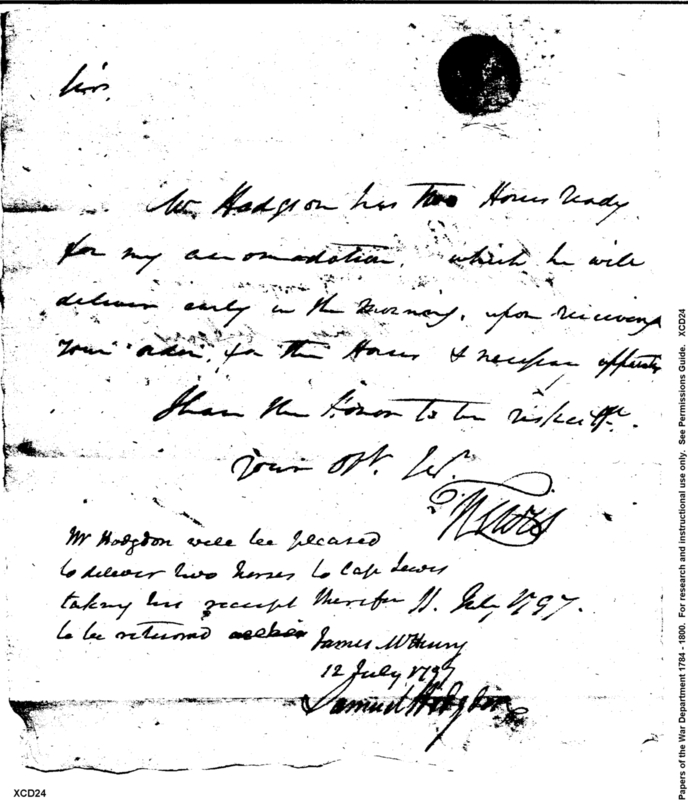 Sir.
Mr Hodgson has two Horses ready
for my accomodation. which he will
deliver early in the morning, upon receiving
your order for the Horses & necessary
I have the Honor to be respectfl.
your Obt. Sr.
Mr Hodgdon will be pleased
to deliver two horses to Cap Lewis
taking his receipt therefor July 1797.
to be returned
James McHenry
12 July 1797
Samuel Hodgdon
XCD24
Papers of the War Department 1784 - 1800. For research and instructional use only. See Permissions Guide. XCD24